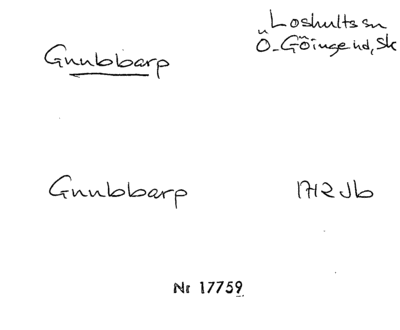 Gnubbarp
Loshults sn
Ö. Göinge hd, Sk
Gnubbarp
1712 Jb
Nr 17759